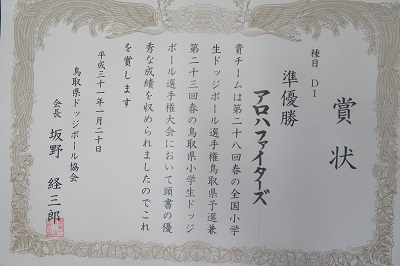 賞状
種目 D1
準優勝
アロハファイターズ
貴チームは第二十八回春の全国小学
生ドッジボール選手権鳥取県予選兼
第二十三回春の鳥取県小学生ドッジ
ボール選手権大会において頭書の優
秀な成績を収められましたのでこれ
を賞します
平成三十一年一月二十日
鳥取県ドッジボール協会
会長 坂野 経三郎